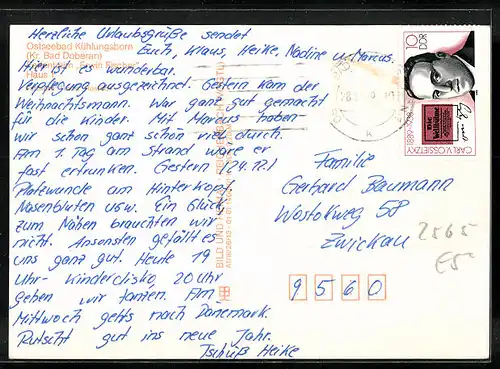 Herzliche Urlaubsgrüße sendet
Euch, Klaus, Heike, Nadine u Marcus.
Ostseebad Kühlungsborn
(Kr. Bad Doberan)
Haus
Hier ist es wunderbar.
Verpflegung ausgezeichnet. Gestern kam der
Weihnachtsmann. War ganz gut gemacht
für die Kinder. Mit Marcus haben
wir schon ganz schön viel durch.
Am 1. Tag am Strand wäre er
fast ertrunken. Gestern (24.12.)
Platzwunde am Hinterkopf.
Nasenbluten usw. Ein Glück,
zum Nähen brauchten wir
nicht. Ansonsten gefällt es
uns ganz gut. Heute 19
Uhr- Kinderdisko, 20 Uhr
gehen wir tanzen. Am
Mittwoch gehts nach Dänemark.
Rutscht gut ins neue Jahr.
Tschüß Heike
BILD UND
10
DDR
CARL V. OSSIETZKY
Familie
Gerhard Baumann
Wostokweg 58
Zwickau
9560
2565